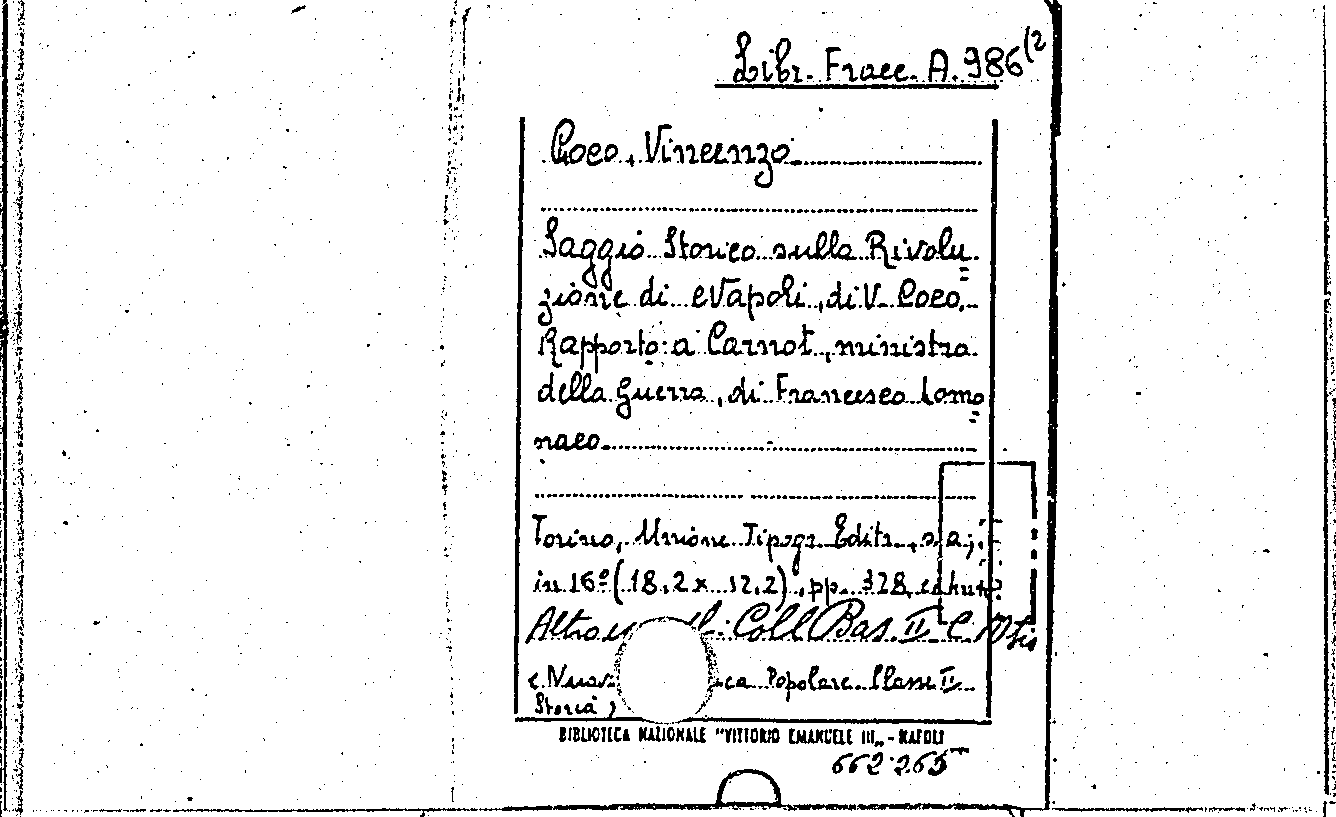 Libr. Fracc. A. 986 (2
Coco, Vincenzo
Saggio Storico sulla Rivolu=
zione di Napoli, di V. Coco.
Rapporto a Carnot, ministro
della Guerra, di Francesco Lomo=
naco.
Torino, Unione Tipogr. Editr., s. a.;
in 16º (18,2 x 12,2), pp. 328,
Altro Coll Bas. II C.
Popolare Classe II
Storia,
BIBLIOTECA NAZIONALE "VITTORIO EMANUELE III„ - NAPOLI
662265